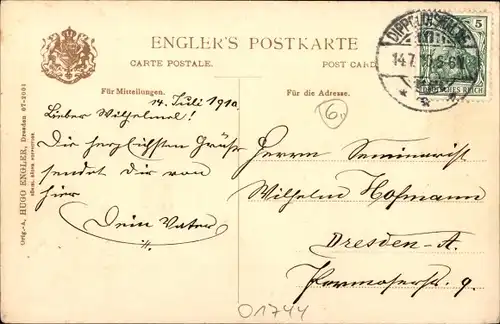 ENGLER'S POSTKARTE
CARTE POSTALE.
POST CARD
Für Mittheilungen.
Für die Adresse.
14. Juli 1910.
Lieber Wilhelmel!
Die herzlichsten Grüße
sendet Dir von
hier
Dein Vater
Herrn Seminarist
Wilhelm Hofmann
Dresden-A.
9.
6
01744
5
DEUTSCHES REICH
DIPPOLDISWALDE
14.7
HUGO ENGLER, Dresden 07-2001